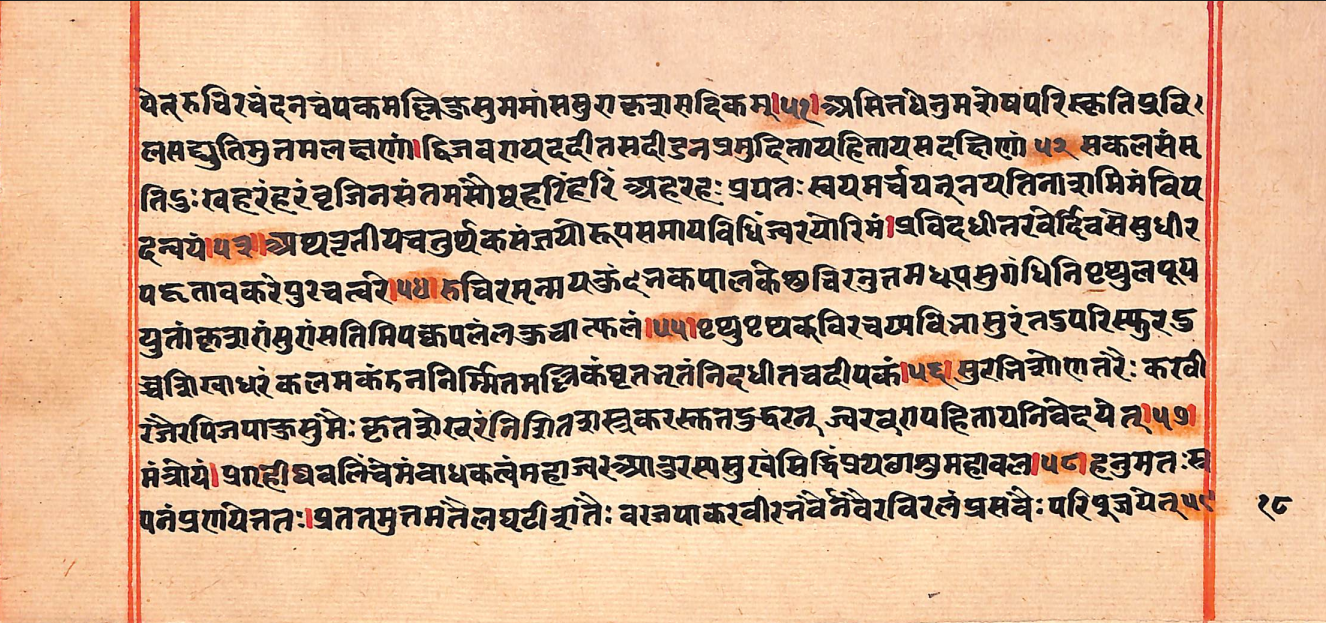 येत् रुचिरचंदनचंपकमल्लिकुसुममांससुराकृशरादिकम्।५१।असितधेनुमशेषपरिस्कृतिप्रवि
लसद्द्युतिमुत्तमलक्षणां।द्विजवरायददीतसदीडनप्रमुदितायहितायसदक्षिणां ५२ सकलसंसृ
तिदुःखहरंहरंवृजिनसंतमसौघहरिंहरिं अहरहःप्रयतःस्वयमर्चयन्नयतिनाशमिमंविप
दन्वयं।५३।अथतृतीयचतुर्थकसंज्ञयोरूपसमायविधिंज्वरयोरिमं।प्रविदधीतरवेर्दिवसेसुधीर
पहृतावकरेपुरचत्वरे।५४।रुचिरमृन्मयकुंडनकपालकेशुचिरनुत्तमधूपसुगंधिनि पृथुलपूप
युतांकृशरांसुरांसतिमिपक्वपलंलकुचात्फलं।५५।पृथुपृथक्विरचय्यवितासुरंतउपरिस्फुरदु
च्चशिखाधरं कलमकंदननिर्मितमल्लिकंघृतनतंनिदधीतचदीपकं।५६।सुरनिशोणतरैः करवी
रजैरपिजपाकुसुमैःकृतशेखरंनिशितशस्त्रकरस्तनदुद्धरन् ज्वरवरापहितायनिवेदयेत्।५७।
मंत्रोयं।प्राग्रहीद्यवलिंचेमंबाधकत्वंमहाज्वरआतुरस्यसुखंसिद्धिंप्रयछाशुमहाबल।५८।हनुमतःस्न
पनंप्रणयेत्ततः।प्रततमुत्तमतैलघटीशतैःवरजपाकरवीरनवैर्नवैरविरलंप्रसवैःपरिपूजयेत्५९
१८